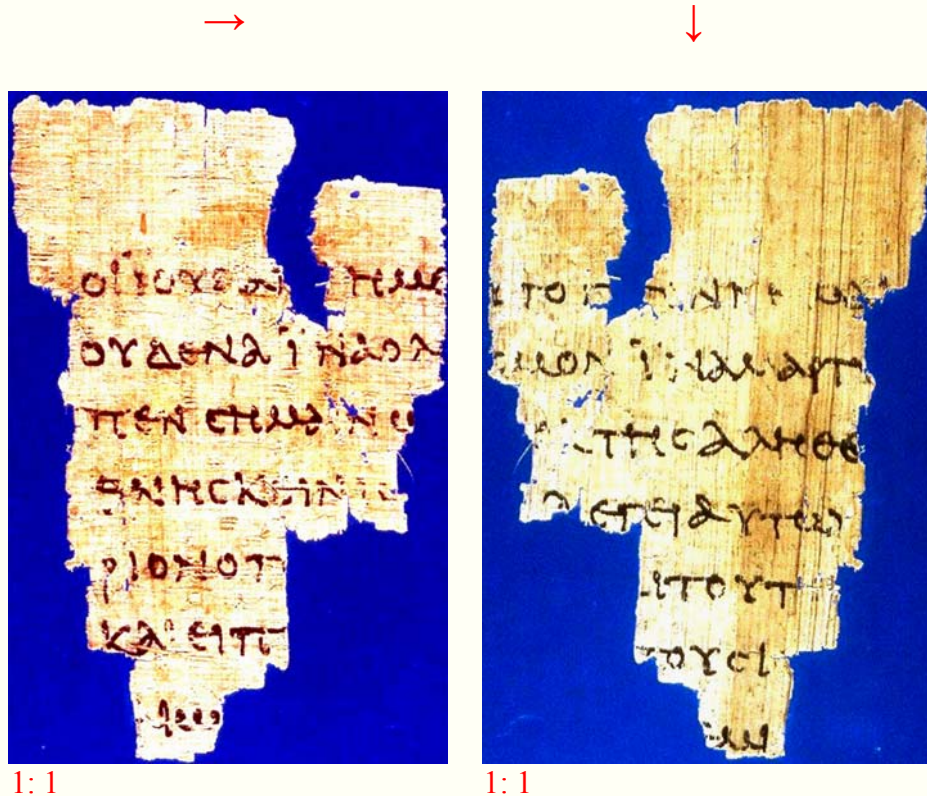 →
ΟΙ ΪΟΥΔΑΙ ΗΜΕ
ΟΥΔΕΝΑ ΪΝΑ Ο Λ
ΠΕΝ ϹΗΜΑΙΝΩ
ΘΝΗϹΚΕΙΝ ΙϹ
ΡΙΟΝ Ο Π
ΚΑΙ ΕΙΠ
ΑΙΩ
1: 1
↓
ΤΟ Γ ΝΝΗΜΑΙ
ϹΜΟΝ ΪΝΑ ΜΑΡΤΥ
ΕΚ ΤΗϹ ΑΛΗΘΕ
ΛΕΓΕΙ ΑΥΤΩ
ΑΙ ΤΟΥΤ
ΤΟΥϹ Ι
ΕΜΙ
1: 1